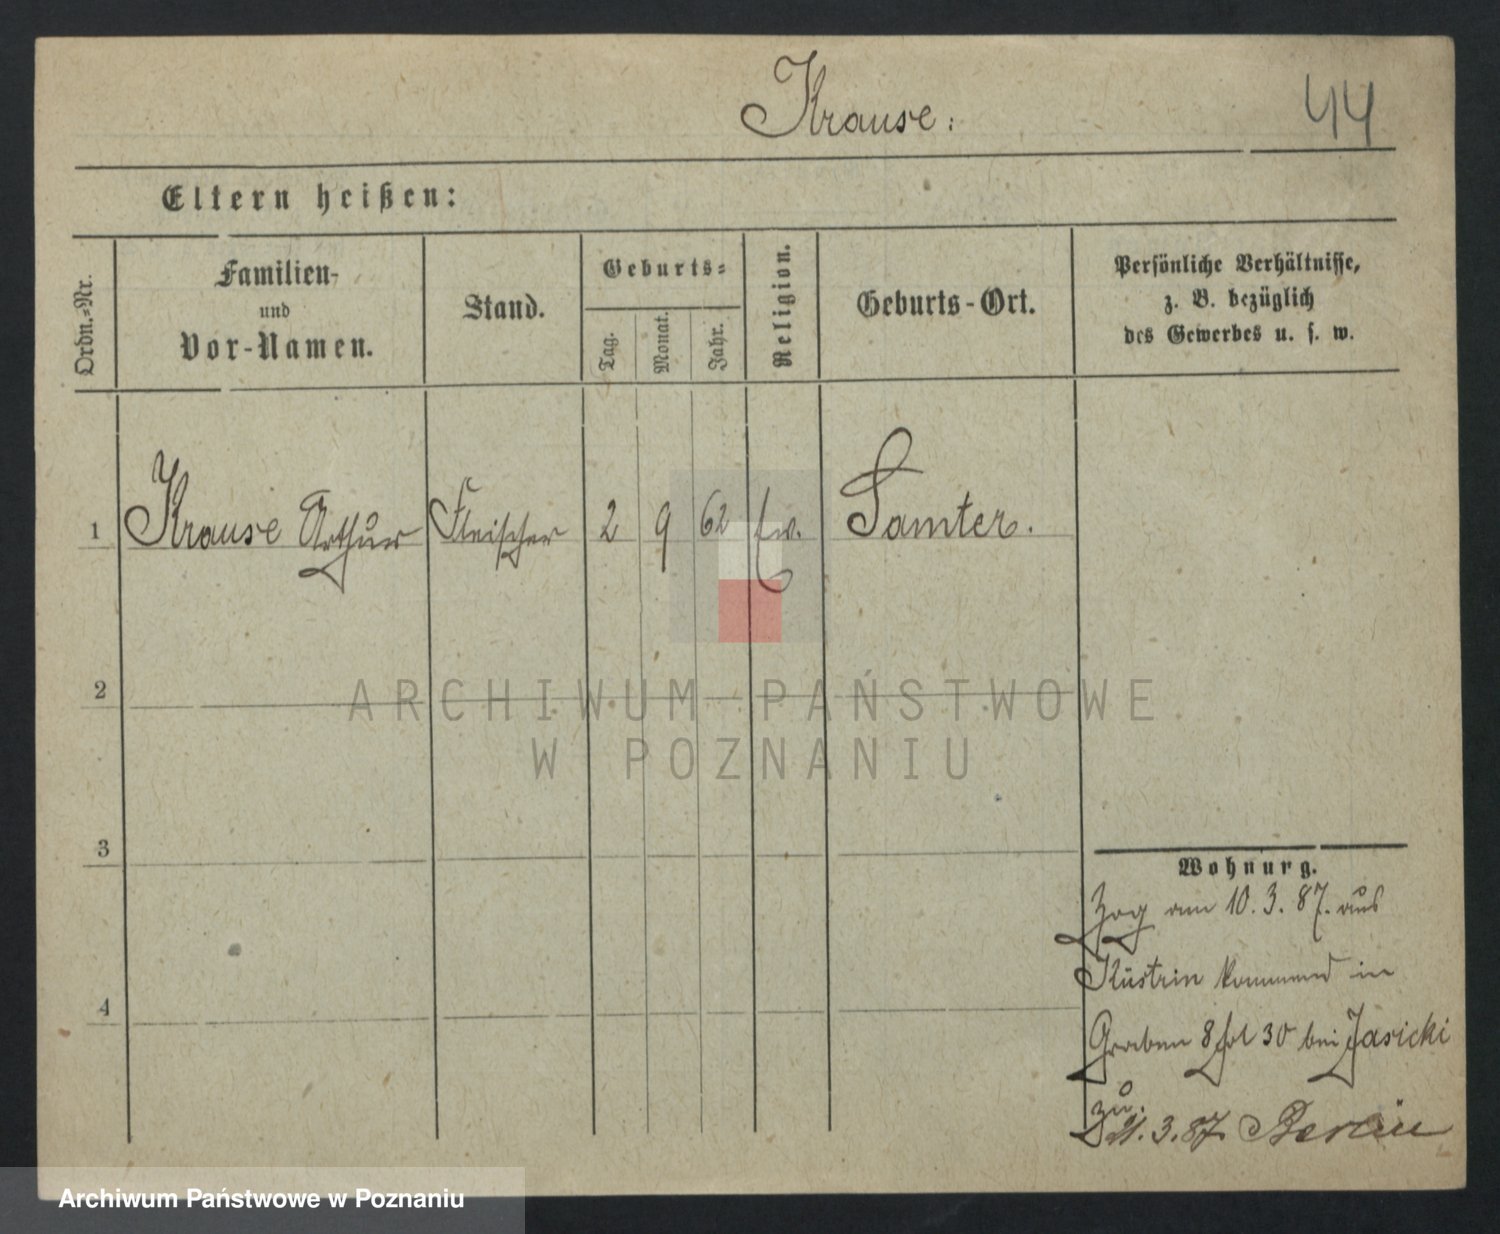 Krause:
44
Eltern heißen:
Ordn.-Nr.
Familien-
und
Vor-Namen.
Stand.
Geburts-
Tag.
Monat.
Jahr.
Religion.
Geburts-Ort.
Persönliche Verhältnisse,
z. B. bezüglich
des Gewerbes u. s. w.
1 Krause Arthur Fleischer 2 9 62 Ev. Samter.
2
ARCHIWUM PAŃSTWOWE
W POZNANIU
3
Wohnung.
Zog am 10.3.87. aus
Küstrin kommend in
4
Graben 8 fol 30 bei Jasicki
zu.
21.3.87 Berlin
Archiwum Państwowe w Poznaniu